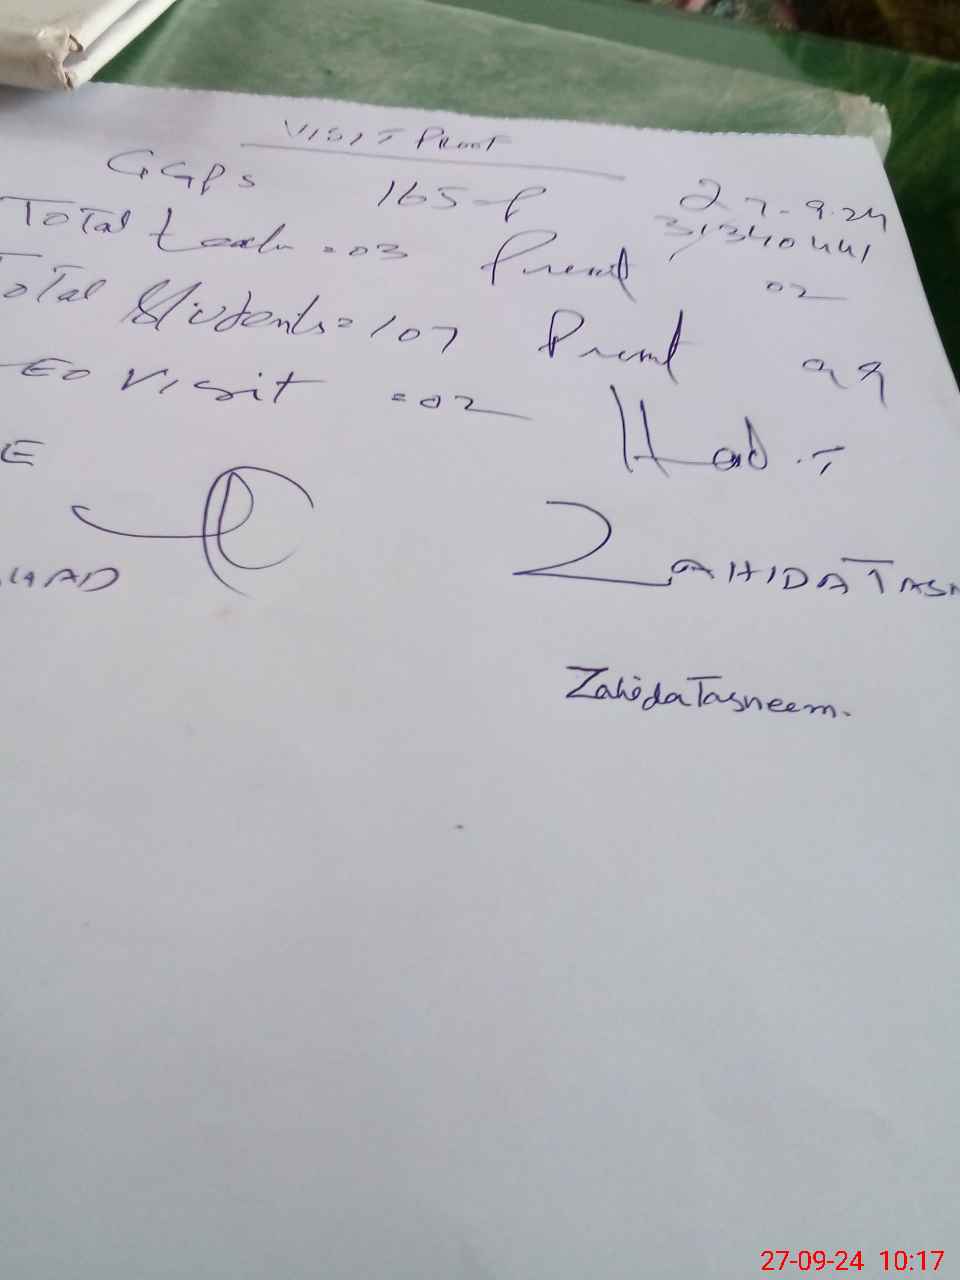 VISIT PROOF
GGPS 165-P 27-9.24
31340441
Total teach = 03 Present 02
Total Students = 107 Present 99
EO Visit = 02 Head.T
E
ZAHIDA TASN
HAD
Zahida Tasneem.
27-09-24 10:17